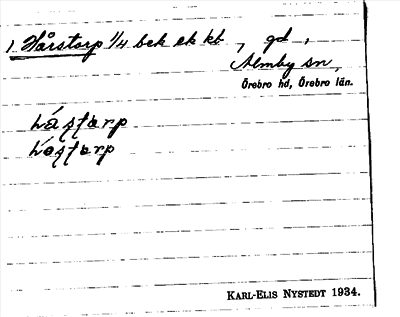 1 Hårstorp 1/4 bek ek kb, gd,
Almby sn,
Örebro hd, Örebro län.
Låstorp
Låstorp
KARL-ELIS NYSTEDT 1934.